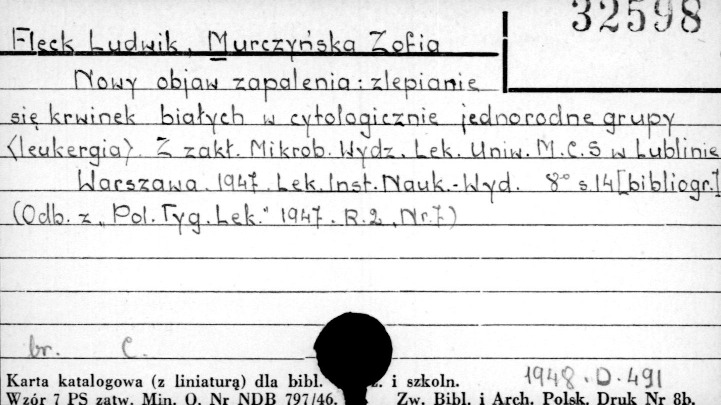 32598
Fleck Ludwik, Murczyńska Zofia
Nowy objaw zapalenia: zlepianie
się krwinek białych w cytologicznie jednorodne grupy
(leukergia). Z zakł. Mikrob. Wydz. Lek. Uniw. M.C.S w Lublinie
Warszawa. 1947. Lek. Inst. Nauk.-Wyd. 8° s. 14 [bibliogr.]
(Odb. z „Pol. Tyg. Lek." 1947. R. 2, Nr. 7)
br. C.
Karta katalogowa (z liniaturą) dla bibl. i szkoln. 1948.D.491
Wzór 7 PS zatw. Min. O. Nr NDB 797/46. Zw. Bibl. i Arch. Polsk. Druk Nr 8b.